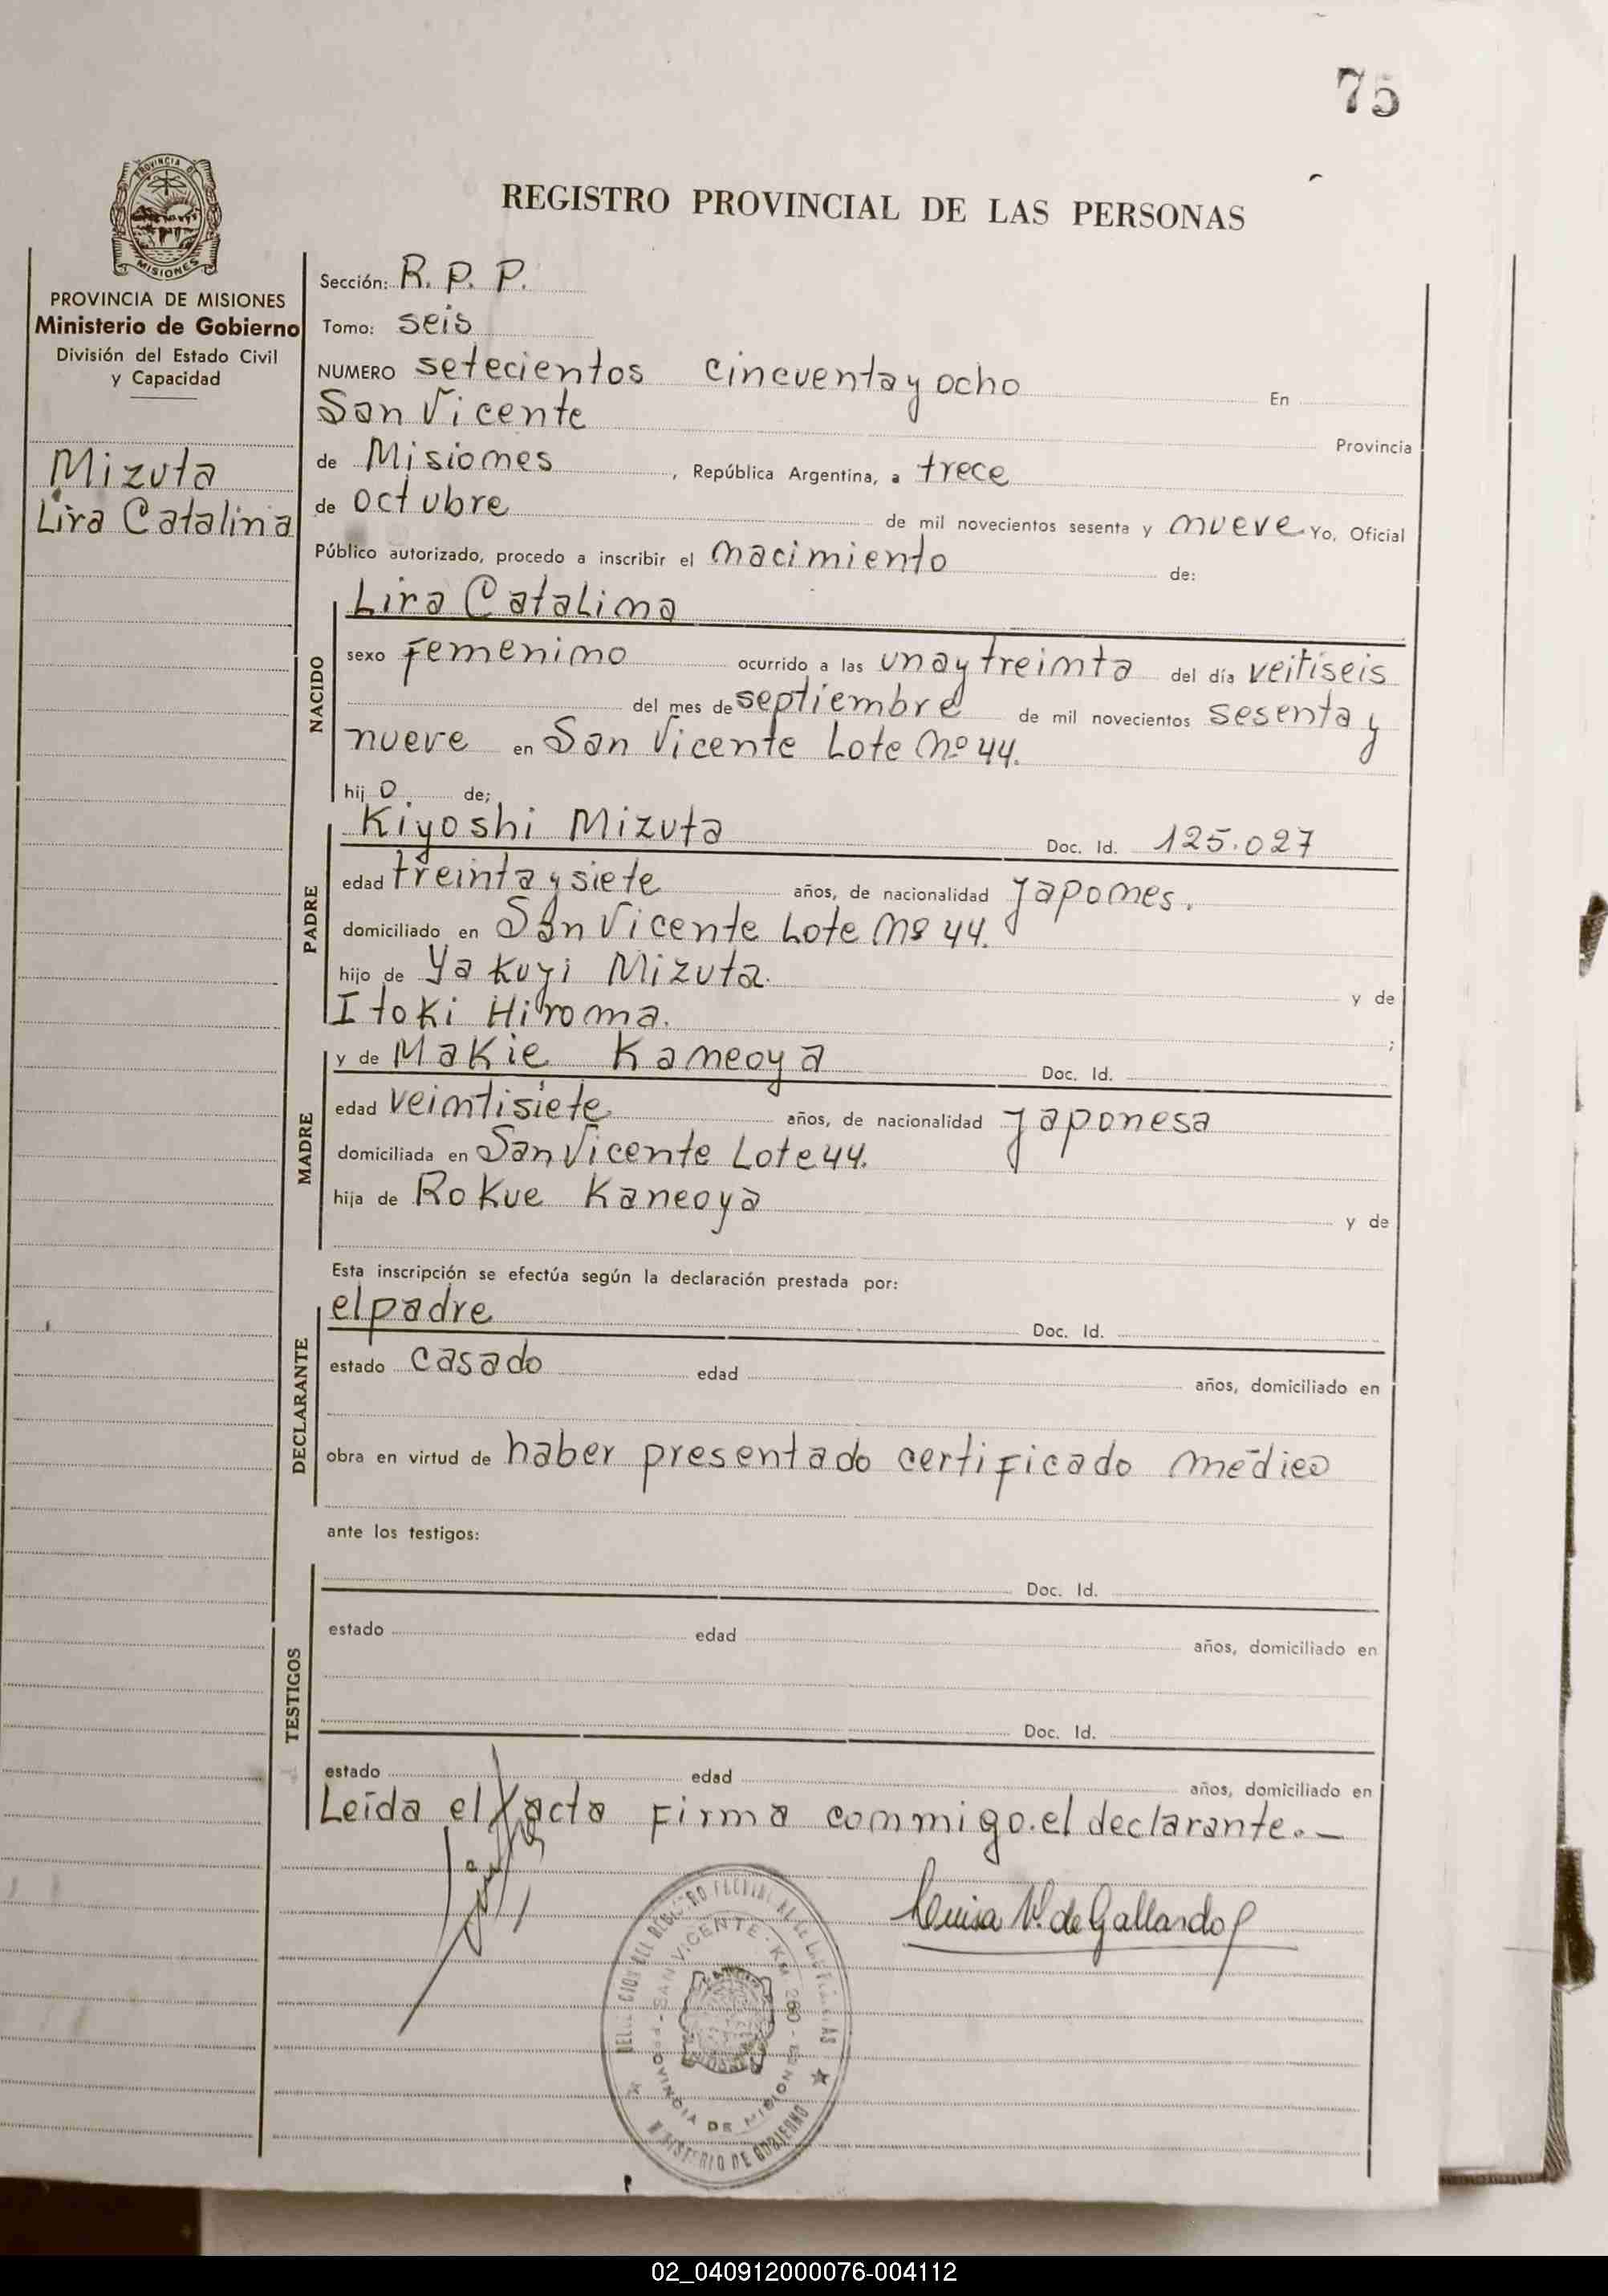 75
PROVINCIA DE
MISIONES
REGISTRO PROVINCIAL DE LAS PERSONAS
PROVINCIA DE MISIONES
Ministerio de Gobierno
División del Estado Civil
y Capacidad
Mizuta
Lira Catalina
Sección: R. P. P.
Tomo: seis
NUMERO setecientos cincuenta y ocho En
San Vicente Provincia
de Misiones, República Argentina, a trece
de octubre de mil novecientos sesenta y nueve Yo, Oficial
Público autorizado, procedo a inscribir el nacimiento de:
NACIDO
Lira Catalina
sexo femenino ocurrido a las una y treinta del día veitiseis
del mes de septiembre de mil novecientos sesenta y
nueve en San Vicente Lote Nº 44.
hij o de;
PADRE
Kiyoshi Mizuta Doc. Id. 125.027
edad treinta y siete años, de nacionalidad japones.
domiciliado en San Vicente Lote Nº 44.
hijo de Yakuyi Mizuta. y de
Itoki Hiroma. ;
MADRE
y de Makie Kaneoya Doc. Id.
edad veintisiete años, de nacionalidad japonesa
domiciliada en San Vicente Lote 44.
hija de Rokue Kaneoya y de
Esta inscripción se efectúa según la declaración prestada por:
DECLARANTE
el padre Doc. Id.
estado casado edad años, domiciliado en
obra en virtud de haber presentado certificado médico
ante los testigos:
TESTIGOS
Doc. Id.
estado edad años, domiciliado en
Doc. Id.
estado edad años, domiciliado en
Leída el acta firma conmigo.el declarante.-
Luisa V. de Gallardo
SAN VICENTE - KM 260 -
PROVINCIA DE MISIONES
MINISTERIO DE GOBIERNO
02_040912000076-004112